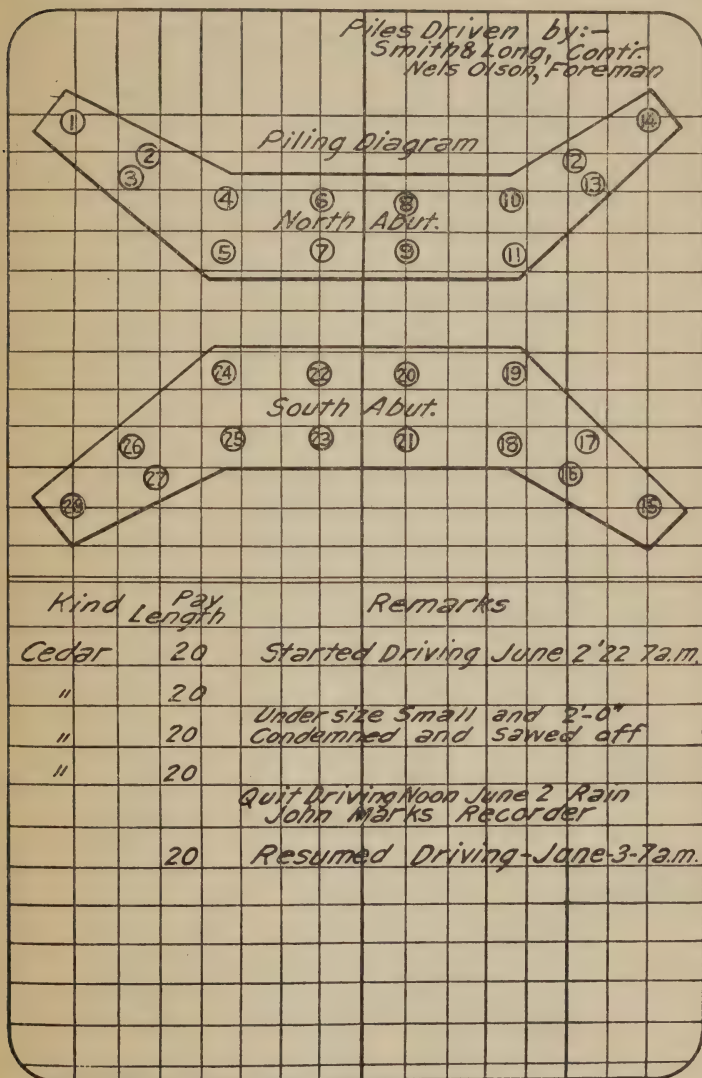 Piles Driven by:-
Smith & Long, Contr.
Nels Olson, Foreman
Piling Diagram
1 14
2 12
3 13
4 6 8 10
North Abut.
5 7 9 11
24 22 20 19
South Abut.
26 25 23 21 18 17
27 16
28 15
Kind Pay Length Remarks
Cedar 20 Started Driving June 2 '22 7a.m.
" 20
Undersize Small and 2'-0"
" 20 Condemned and sawed off
" 20
Quit Driving Noon June 2 Rain
John Marks Recorder
20 Resumed Driving-June-3-7a.m.